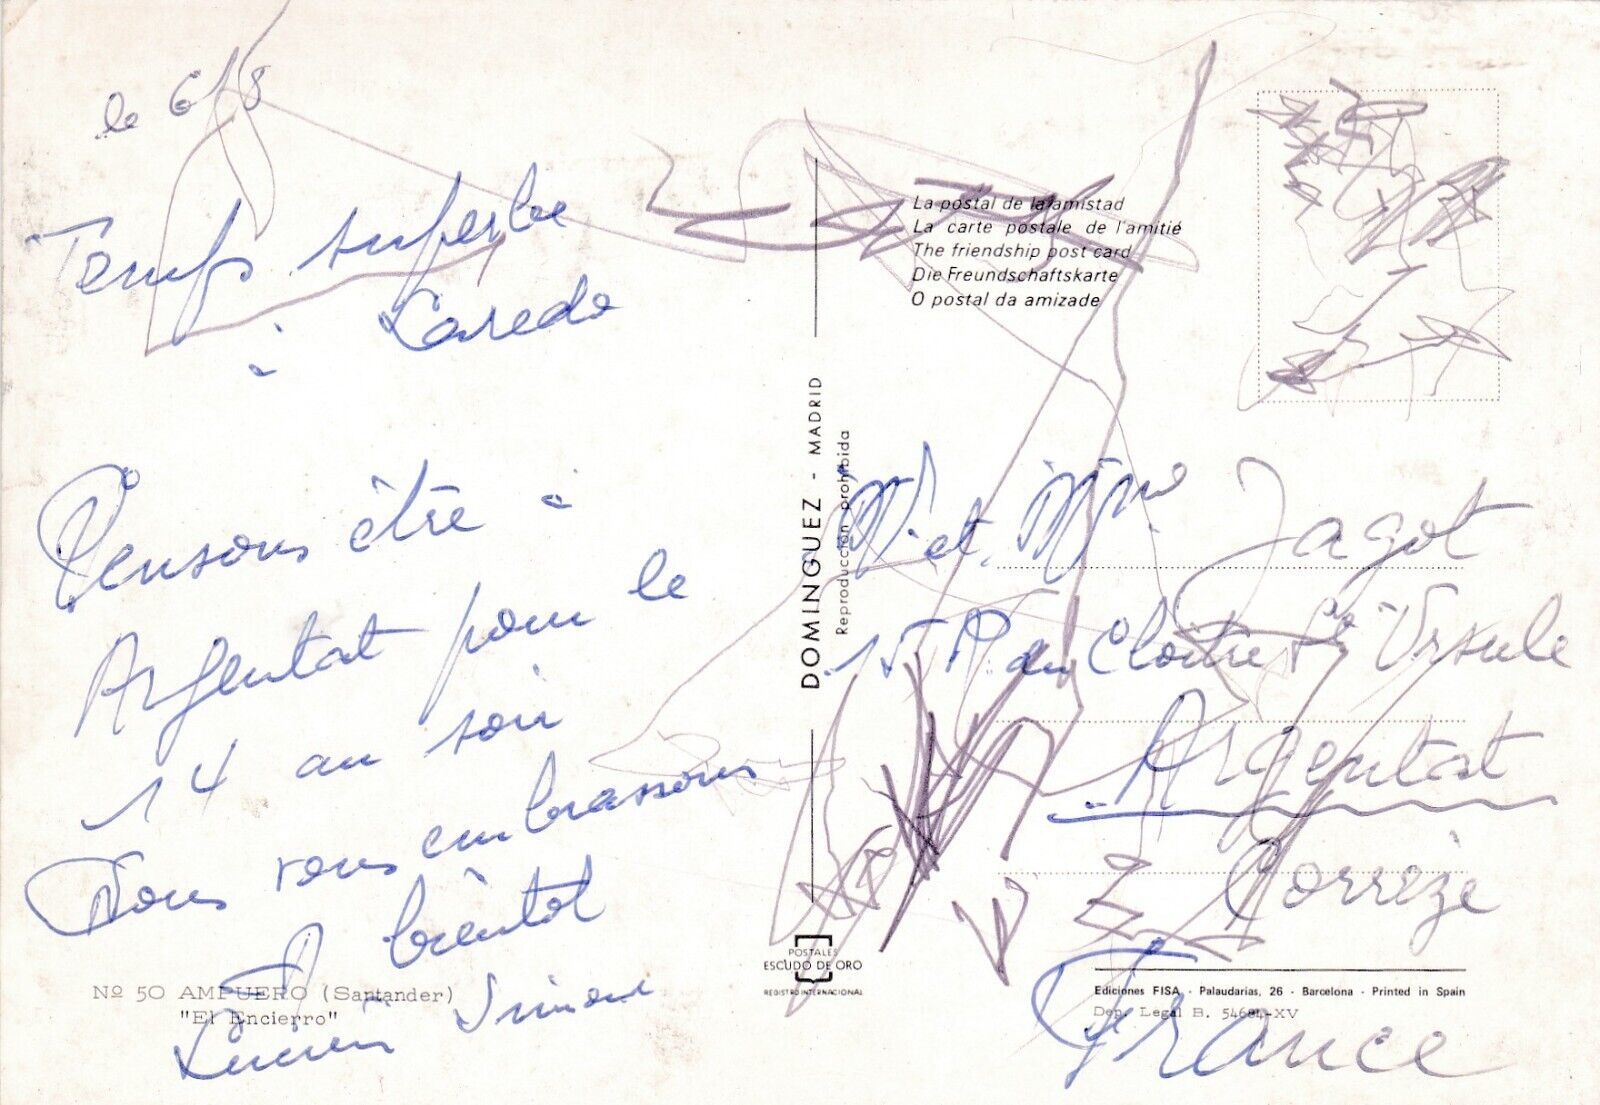 le 6/8
Temps superbe
à Laredo
Pensons être à
Argentat pour le
14 au soir
Nous vous embrassons
A bientôt
Lucien Simone
Nº 50 AMPUERO (Santander)
"El Encierro"
DOMINGUEZ - MADRID
Reproducción prohibida
POSTALES
ESCUDO DE ORO
REGISTRO INTERNACIONAL
La postal de la amistad
La carte postale de l'amitié
The friendship post card
Die Freundschaftskarte
O postal da amizade
Mr et Mme Jagot
15 R. du Cloître Ste Ursule
Argentat
Corrèze
France
Ediciones FISA - Palaudarias, 26 - Barcelona - Printed in Spain
Dep. Legal B. 54684-XV